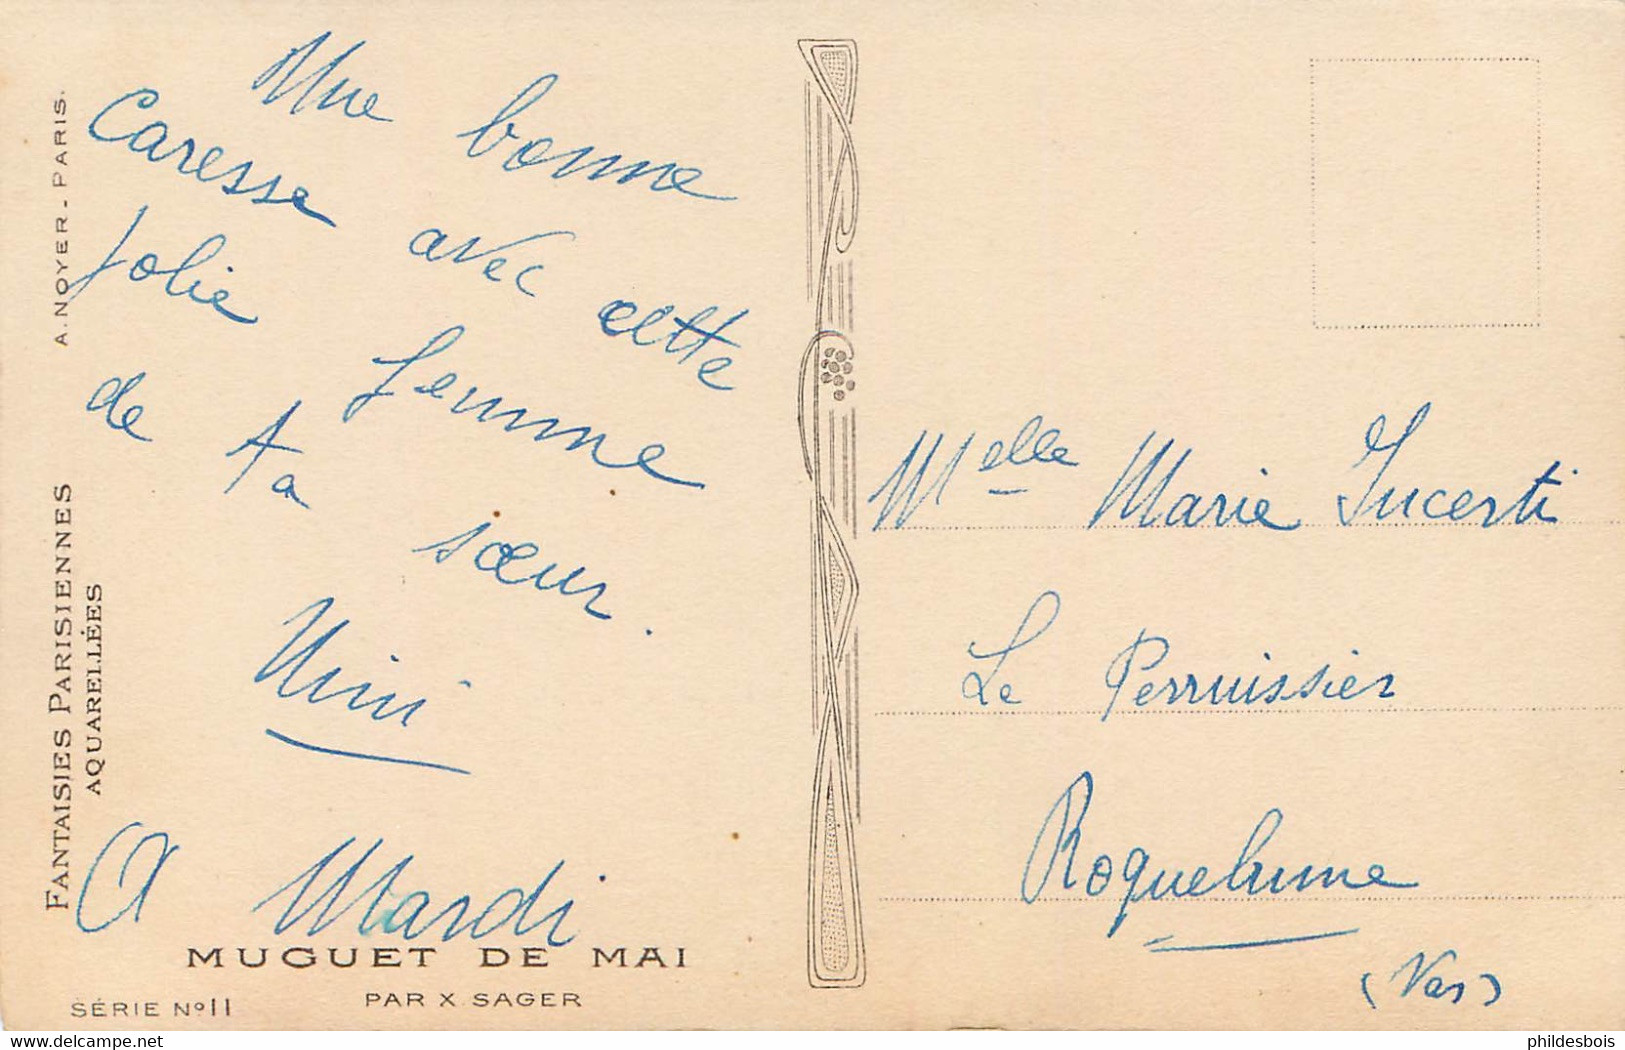 Une bonne
Caresse avec cette
jolie femme
de ta sœur.
Nini
A Mardi
A. NOYER - PARIS.
FANTAISIES PARISIENNES
AQUARELLÉES
MUGUET DE MAI
PAR X. SAGER
SÉRIE No 11
Melle Marie Incerti
Le Perruissier
Roquebrune
(Var)
delcampe.net
phildesbois